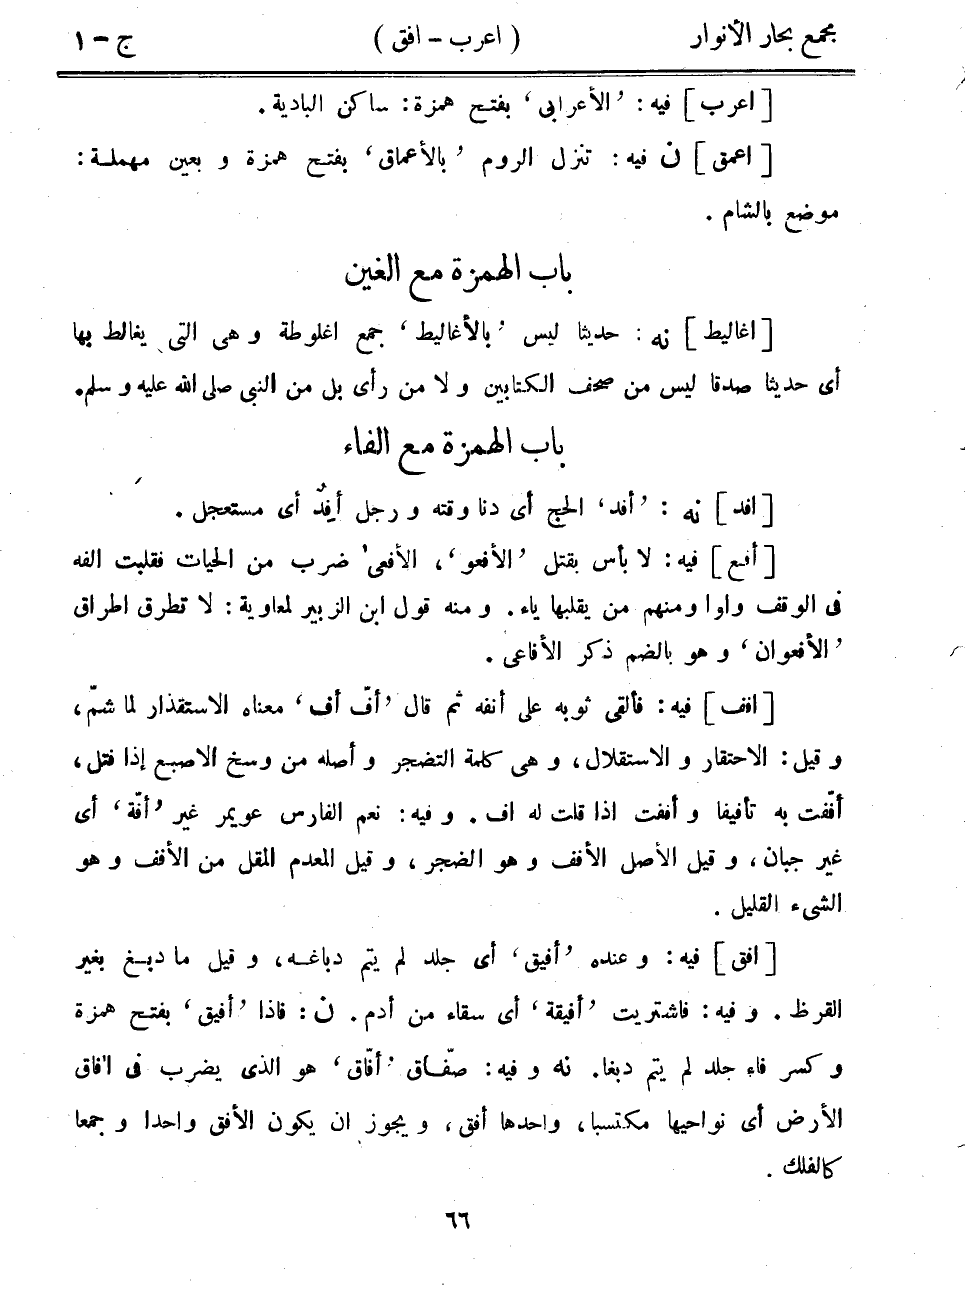 مجمع بحار الأنوار ( اعرب - افق ) ج - ١
[ اعرب ] فيه : ’الأعرابى‘ بفتح همزة : ساكن البادية .
[ اعمق ] ن فيه : تنزل الروم ’بالأعماق‘ بفتح همزة و بعين مهملة :
موضع بالشام .
باب الهمزة مع الغين
[ اغاليط ] نه : حديثا ليس ’بالأغاليط‘ جمع اغلوطة و هى التى يغالط بها
أى حديثا صدقا ليس من صحف الكتابين و لا من رأى بل من النبى صلى الله عليه و سلم.
باب الهمزة مع الفاء
[ افد ] نه : ’أفد‘ الحج أى دنا وقته و رجل أفِدٌ أى مستعجل .
[ أفع ] فيه : لا بأس بقتل ’الأفعو‘، الأفعى ضرب من الحيات فقلبت الفه
فى الوقف واوا ومنهم من يقلبها ياء. و منه قول ابن الزبير لمعاوية : لا تطرق اطراق
’الأفعوان‘ و هو بالضم ذكر الأفاعى .
[ افف ] فيه : فألقى ثوبه على أنفه ثم قال ’أفّ أف‘ معناه الاستقذار لما شمّ،
و قيل : الاحتقار و الاستقلال، و هى كلمة التضجر و أصله من وسخ الاصبع إذا فتل،
أفّفت به تأفيفا و أففت اذا قلت له اف . و فيه : نعم الفارس عويمر غير ’أفّة‘ أى
غير جبان، و قيل الأصل الأفف و هو الضجر، و قيل المعدم المقل من الأفف و هو
الشىء القليل .
[ افق ] فيه : و عنده ’أفيق‘ أى جلد لم يتم دباغه، و قيل ما دبغ بغير
القرظ . و فيه : فاشتريت ’أفيقة‘ أى سقاء من أدم. ن : فاذا ’أفيق‘ بفتح همزة
و كسر فاء جلد لم يتم دبغا. نه و فيه : صفّاق ’أفّاق‘ هو الذى يضرب فى آفاق
الأرض أى نواحيها مكتسبا، واحدها أفق، و يجوز ان يكون الأفق واحدا و جمعا
كالفلك .
٦٦